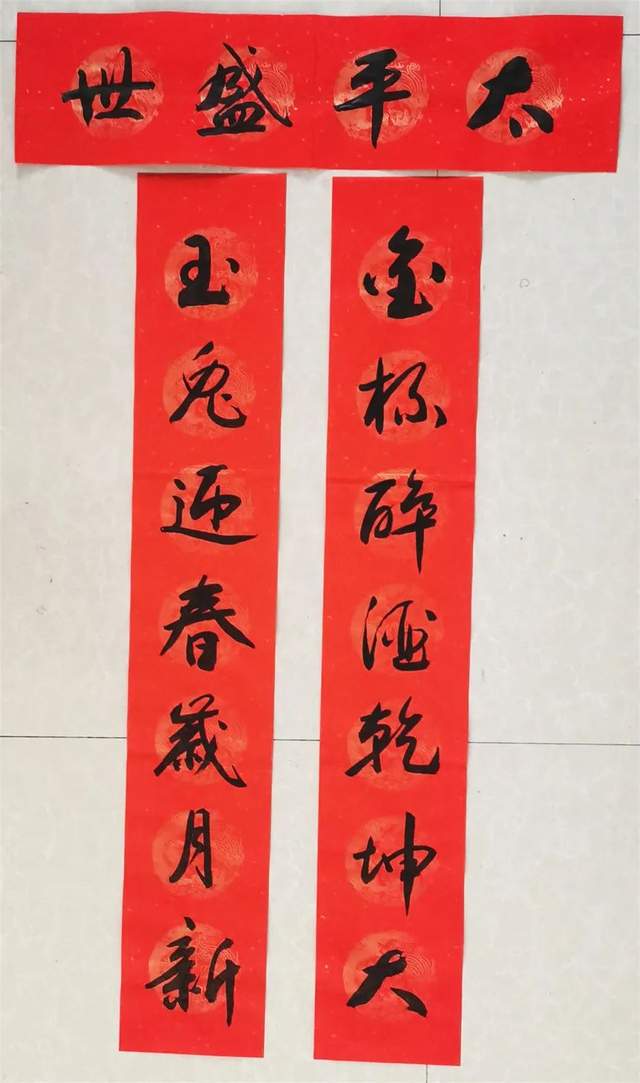 太平盛世
金杯醉酒乾坤大
玉兔迎春歲月新